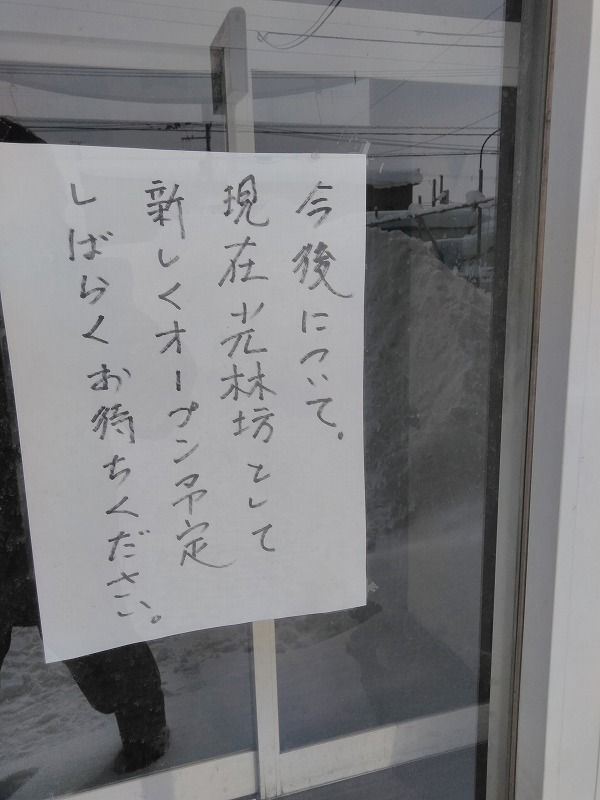 今後について。
現在光林坊として
新しくオープン予定
しばらくお待ちください。